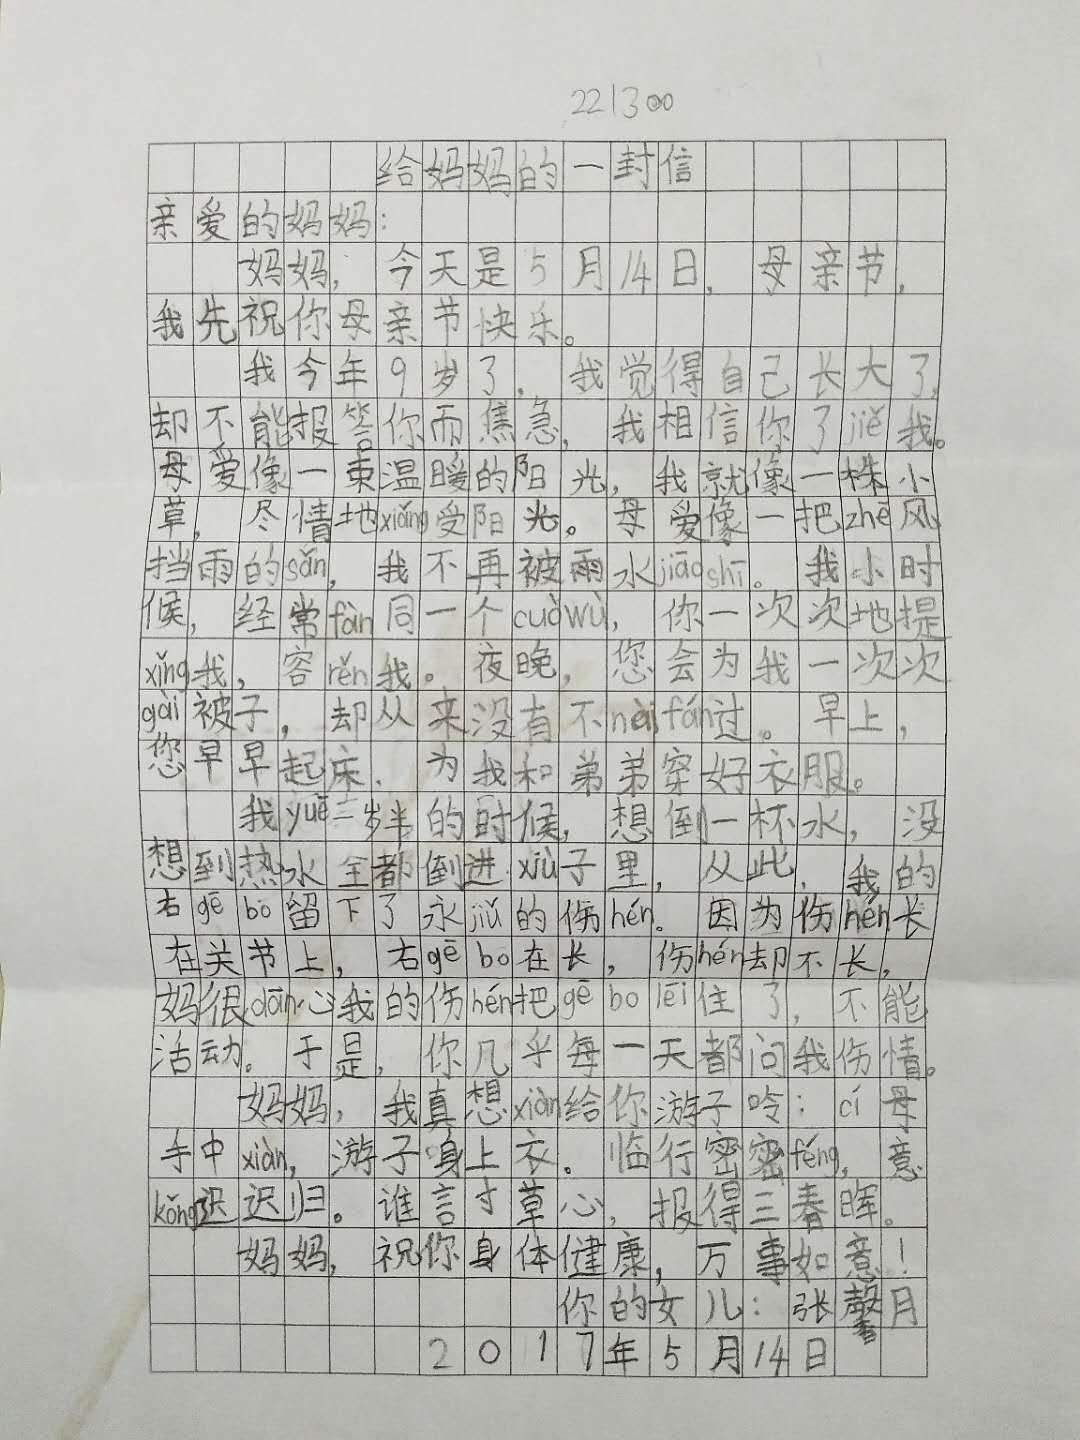 221300
给妈妈的一封信
亲爱的妈妈:
妈妈,今天是5月14日,母亲节,
我先祝你母亲节快乐。
我今年9岁了,我觉得自己长大了,
却不能报答你而焦急,我相信你了jiě我。
母爱像一束温暖的阳光,我就像一株小
草,尽情地xiǎng受阳光。母爱像一把zhē风
挡雨的sǎn,我不再被雨水jiāoshī。我小时
候,经常fàn同一个cuòwù,你一次次地提
xǐng我,容rěn我。夜晚,您会为我一次次
gài被子,却从来没有不nàifán过。早上,
您早早起床,为我和弟弟穿好衣服。
我yuē三岁半的时候,想倒一杯水,没
想到热水全都倒进xiù子里,从此,我的
右gē bo留下了永jiǔ的伤hén。因为伤hén长
在关节上,右gē bo在长,伤hén却不长,
妈很dān心我的伤hén把gē bo lēi住了,不能
活动。于是,你几乎每一天都问我伤情。
妈妈,我真想xiàn给你游子呤:cí母
手中xiàn,游子身上衣。临行密密féng,意
kǒng迟迟归。谁言寸草心,报得三春晖。
妈妈,祝你身体健康,万事如意!
你的女儿:张馨月
2017年5月14日